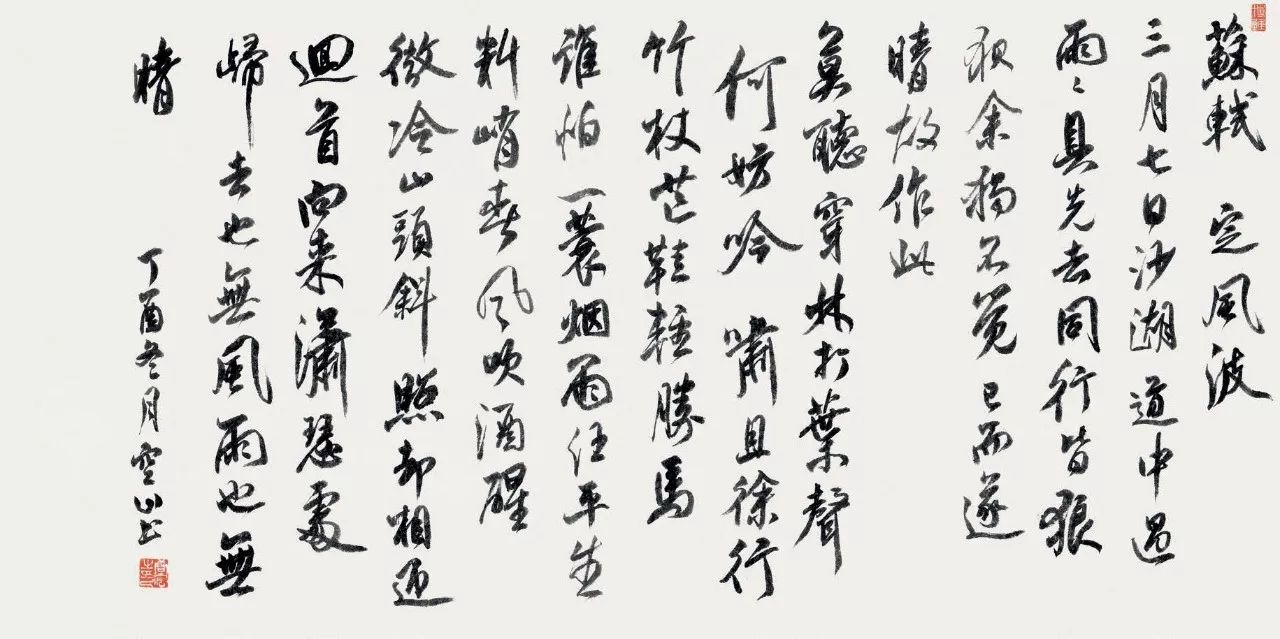 蘇軾 定風波
三月七日沙湖道中遇
雨〻具先去同行皆狼
狽余獨不覺已而遂
晴故作此
莫聽穿林打葉聲
何妨吟嘯且徐行
竹杖芒鞋輕勝馬
誰怕一蓑烟雨任平生
料峭春風吹酒醒
微冷山頭斜照却相迎
迴首向來瀟瑟處
歸去也無風雨也無
晴
丁酉冬月空山书